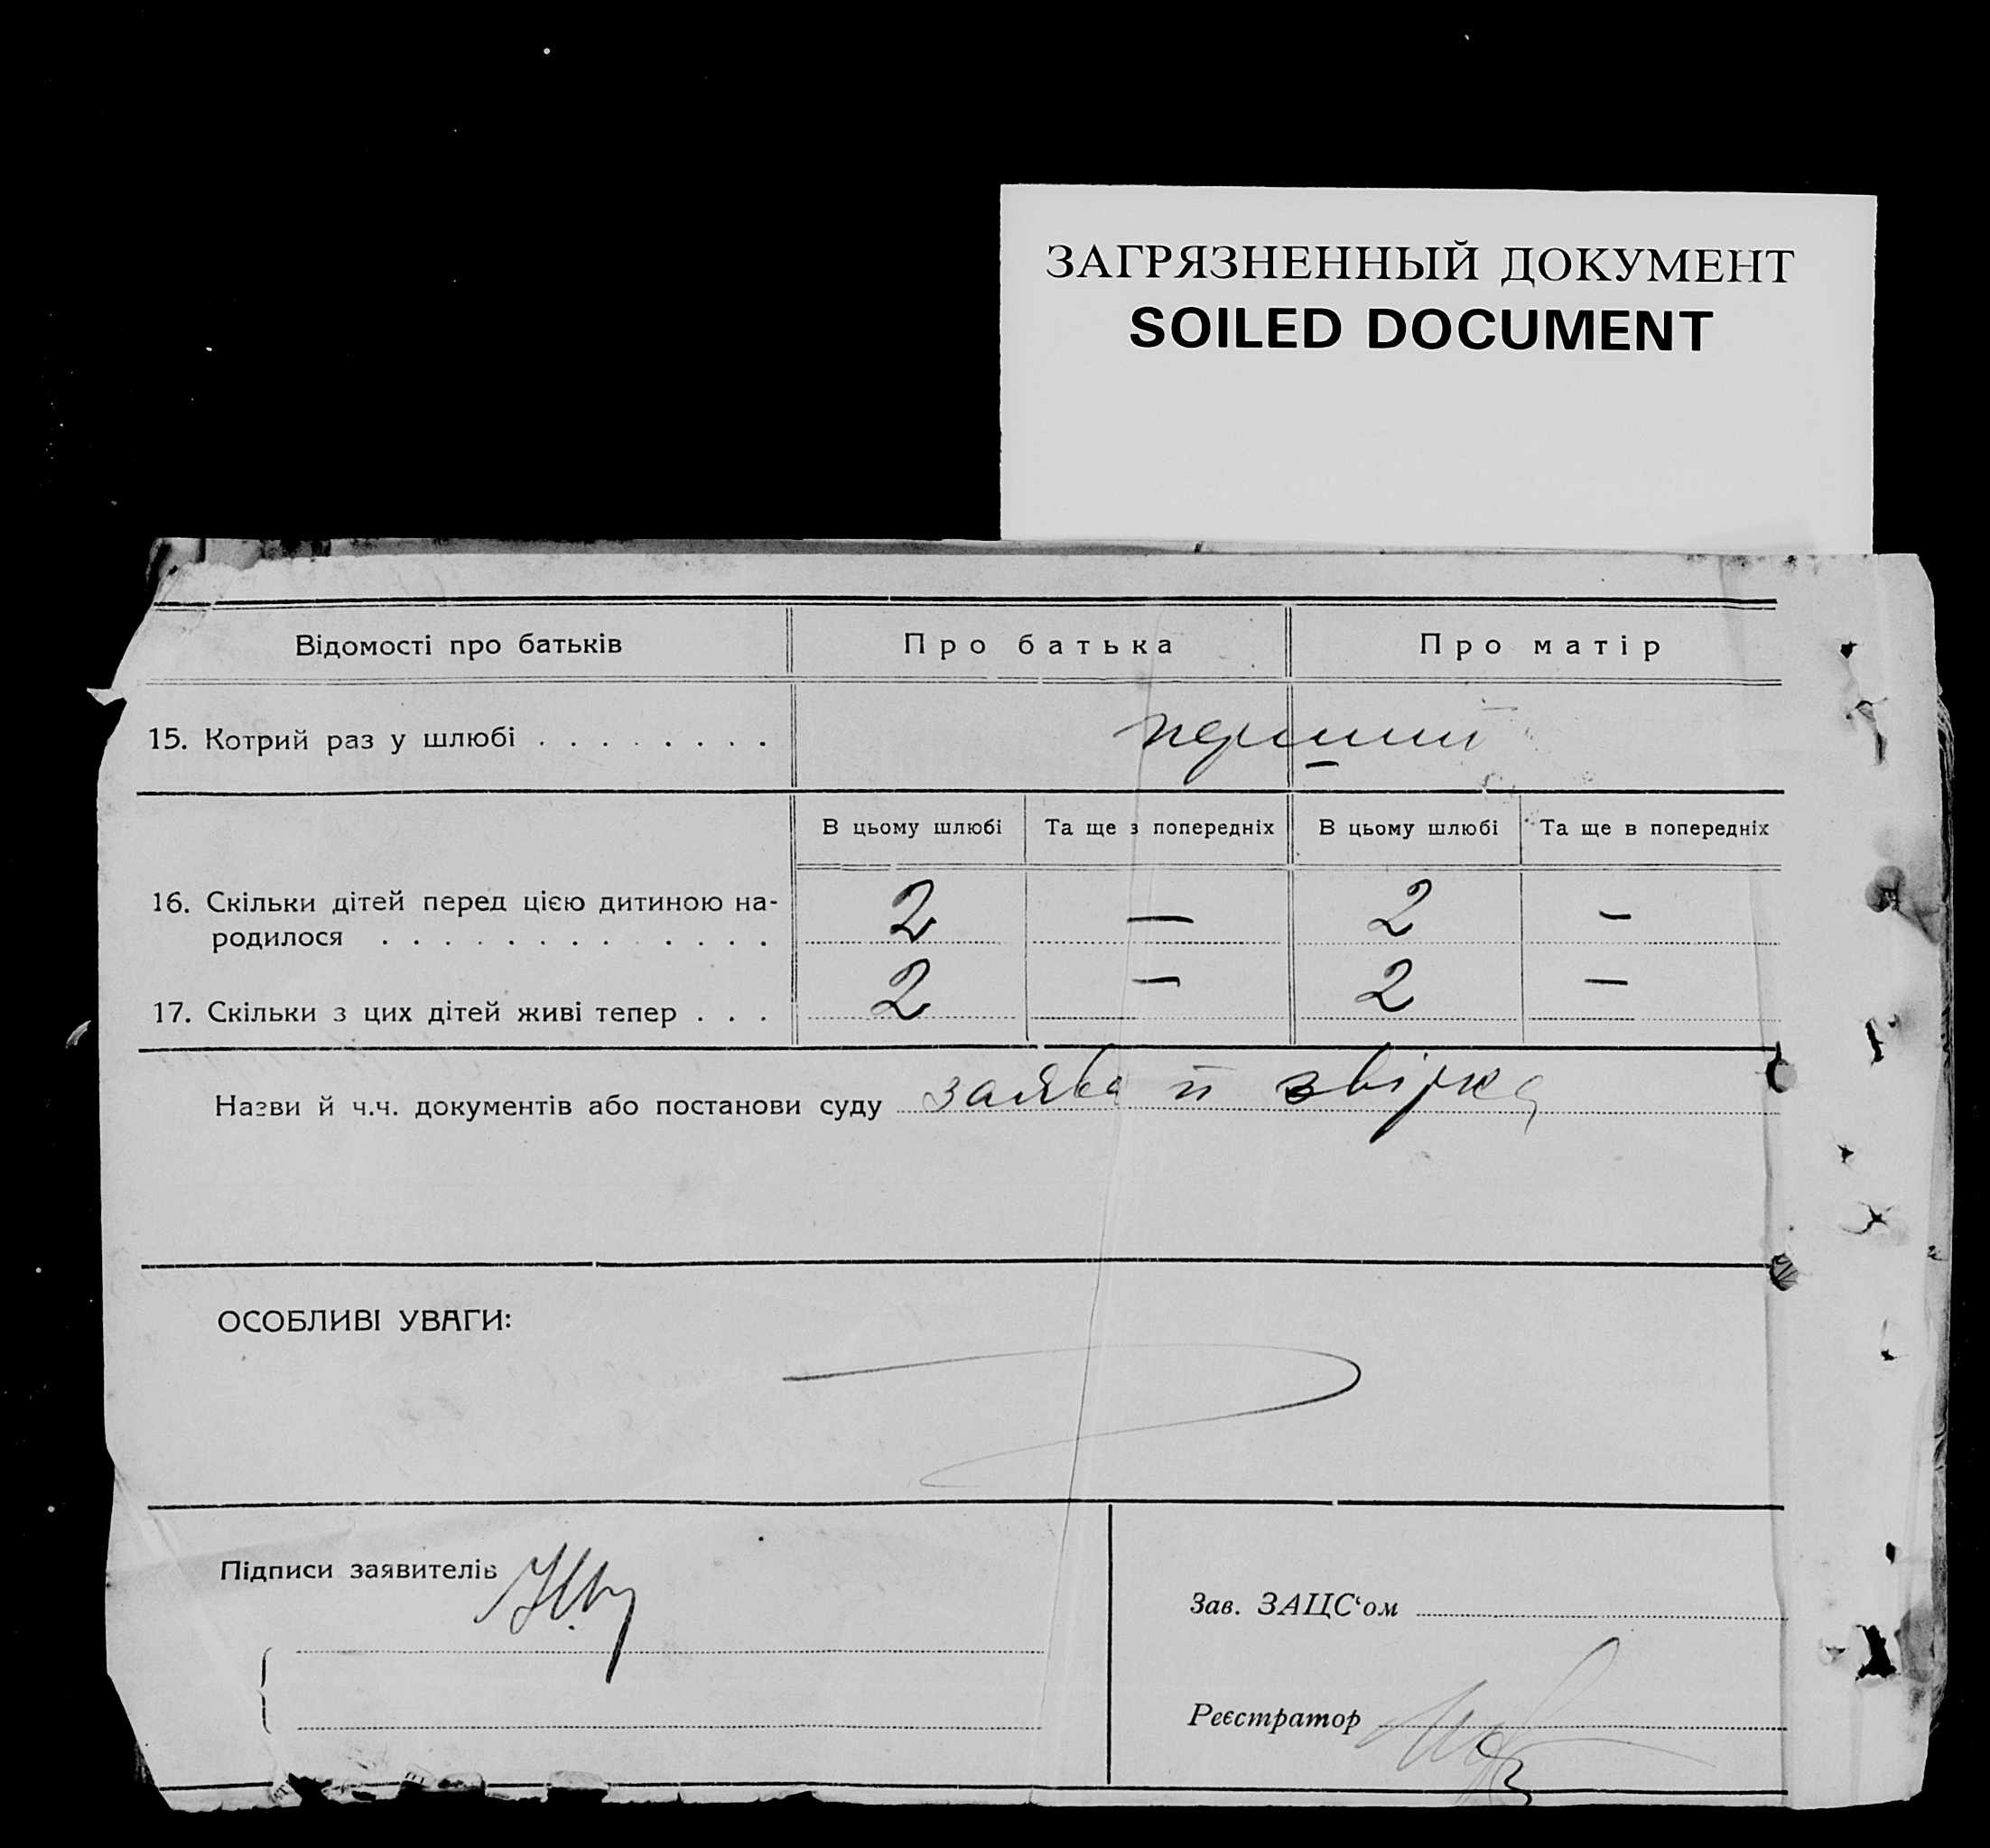 ЗАГРЯЗНЕННЫЙ ДОКУМЕНТ
SOILED DOCUMENT
Відомості про батьків Про батька Про матір
15. Котрий раз у шлюбі . . . . . . . . перший
В цьому шлюбі Та ще з попередніх В цьому шлюбі Та ще в попередніх
16. Скільки дітей перед цією дитиною на-
родилося . . . . . . . . . . . . . . 2 — 2 —
17. Скільки з цих дітей живі тепер . . . 2 — 2 —
Назви й ч.ч. документів або постанови суду заява й звірка
ОСОБЛИВІ УВАГИ:
Підписи заявителів
Зав. ЗАЦС‘ом
Реєстратор